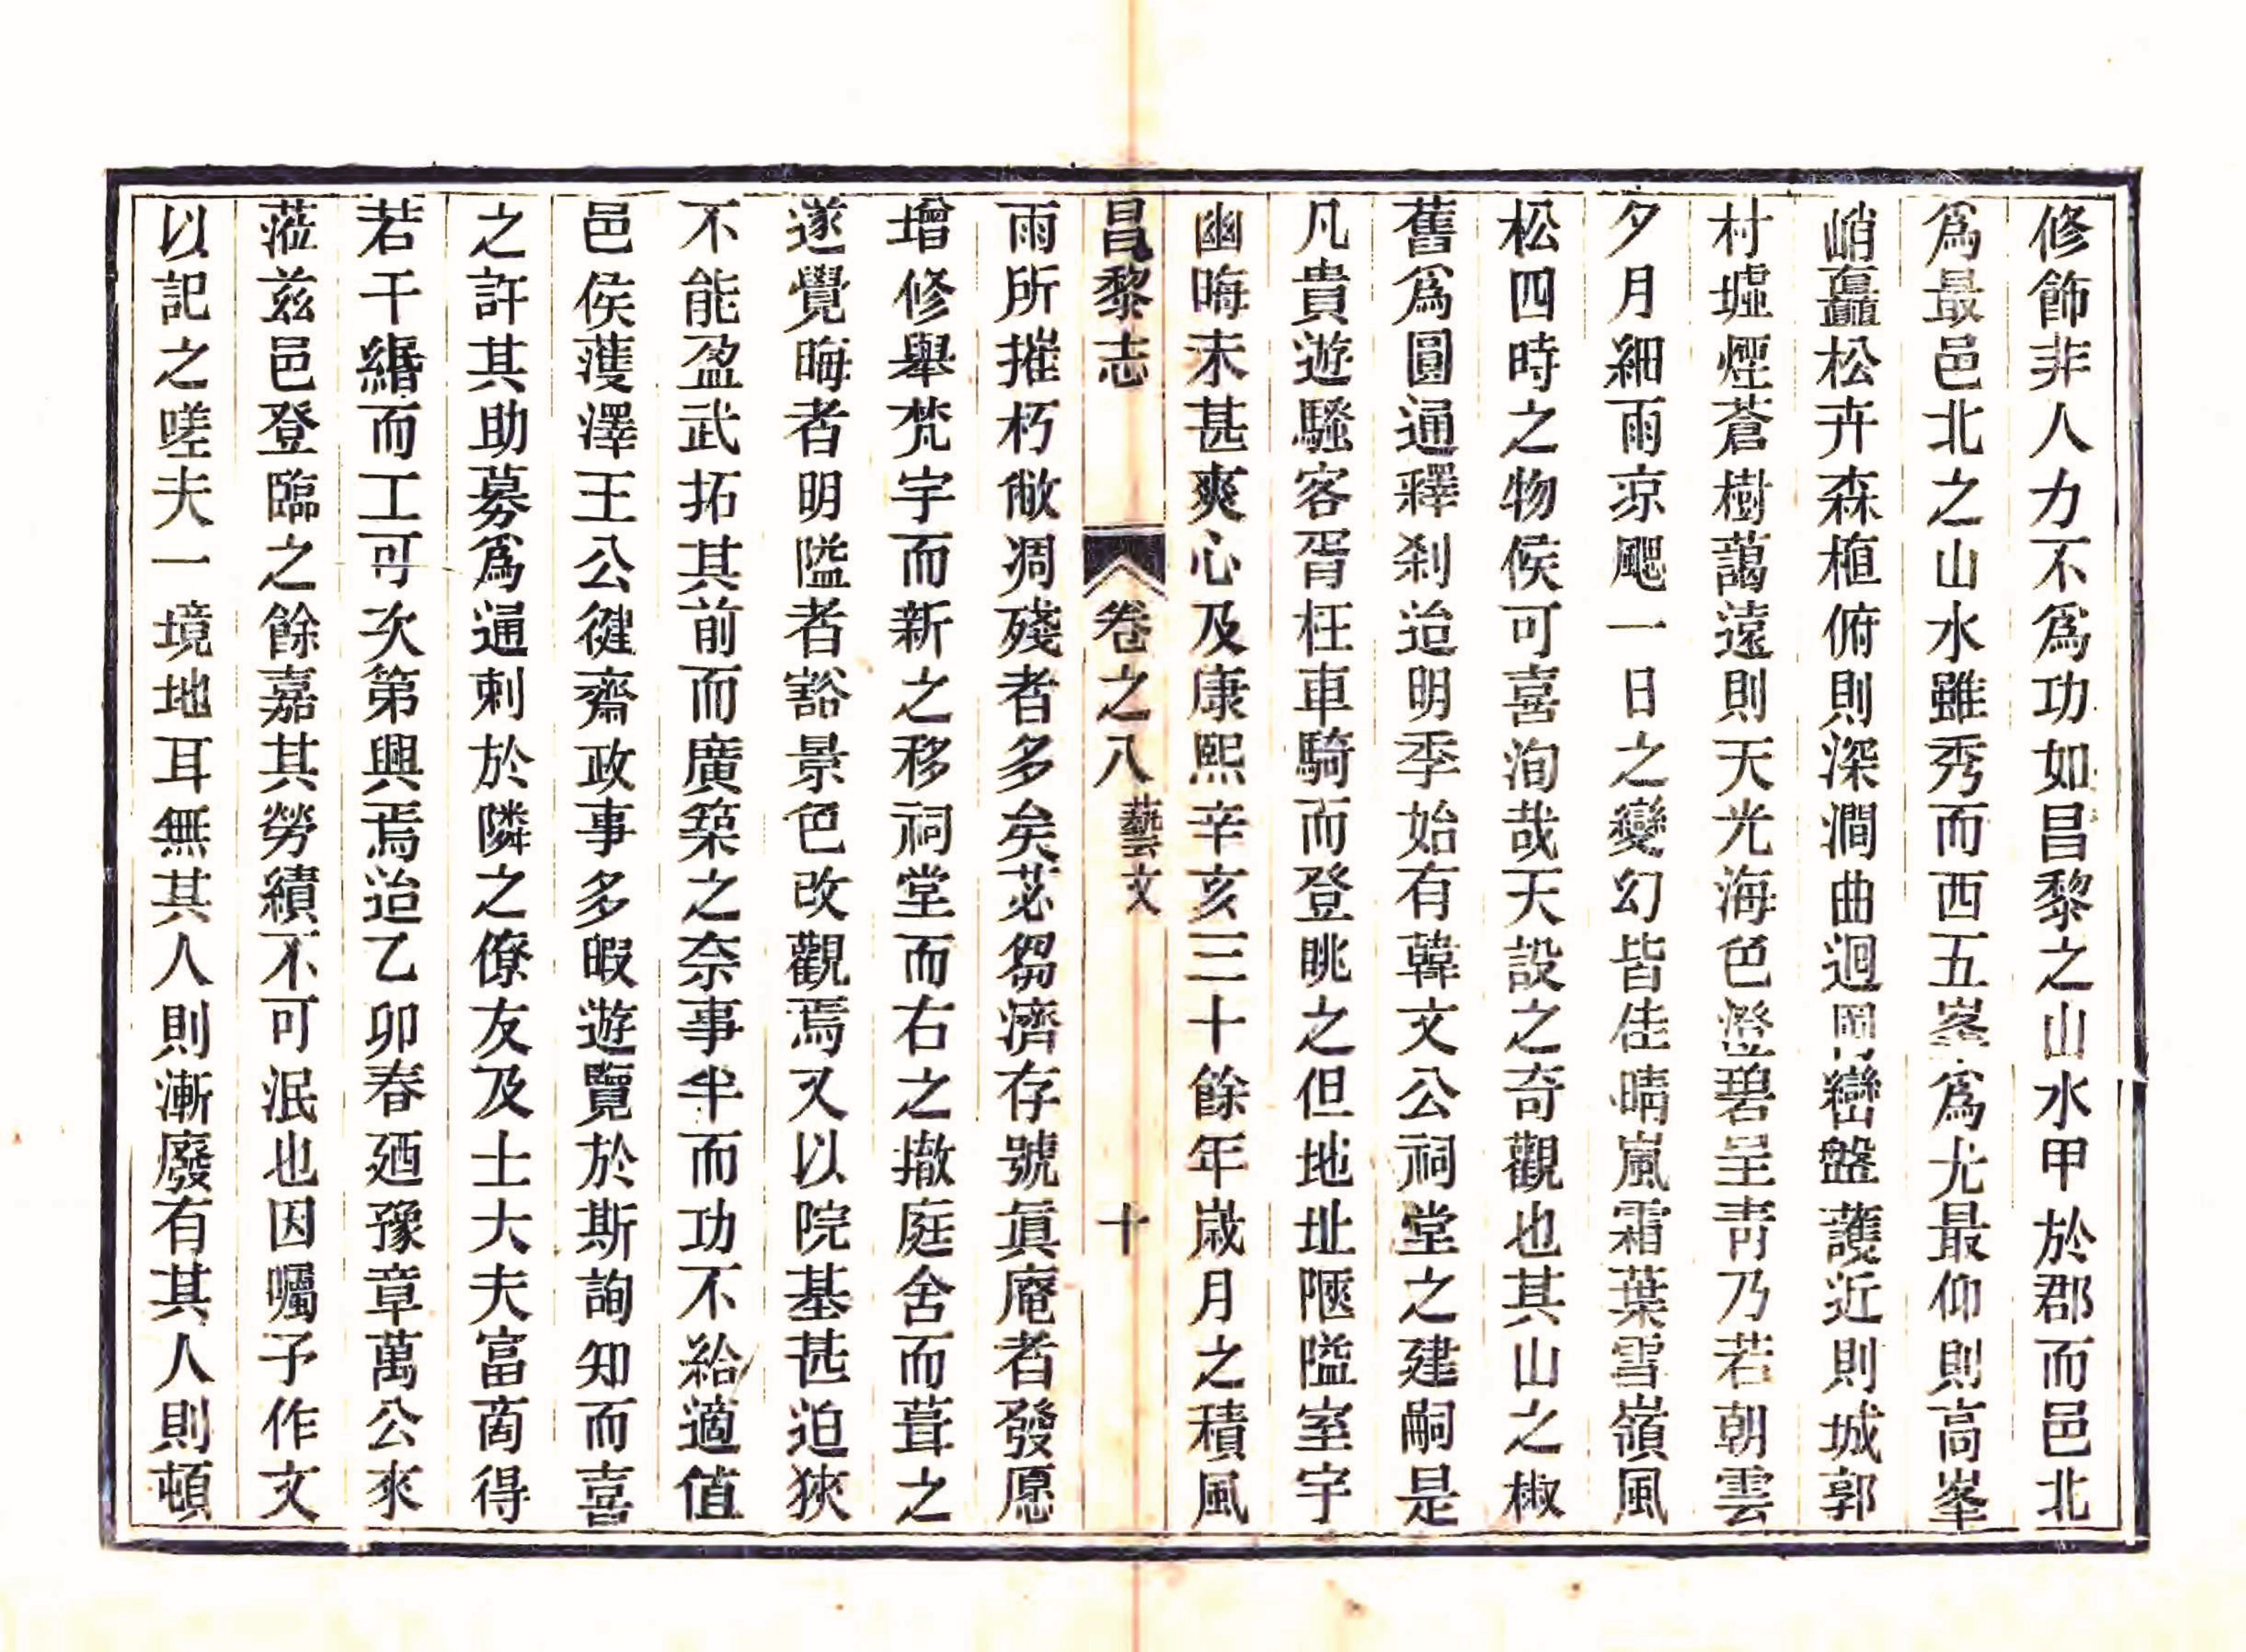 修飾非人力不爲功如昌黎之山水甲於郡而邑北
爲最邑北之山水雖秀而西五峯爲尤最仰則高峯
峭矗松卉森植俯則深澗曲迴岡巒盤護近則城郭
村墟煙蒼樹藹遠則天光海色澄碧呈靑乃若朝雲
夕月細雨凉颸一日之變幻皆佳晴嵐霜葉雪嶺風
松四時之物候可喜洵哉天設之奇觀也其山之椒
舊爲圓通釋刹迨明季始有韓文公祠堂之建嗣是
凡貴遊騷客胥枉車騎而登眺之但地址陋隘室宇
幽晦未甚爽心及康熙辛亥三十餘年歲月之積風
昌黎志 卷之八 藝文 十
雨所摧朽敝凋殘者多矣苾芻濟存號眞庵者發愿
增修舉梵宇而新之移祠堂而右之撤庭舍而葺之
遂覺晦者明隘者豁景色改觀焉又以院基甚迫狹
不能盈武拓其前而廣築之奈事半而功不給適值
邑侯蒦澤王公徤齋政事多暇遊覽於斯詢知而喜
之許其助募爲通刺於隣之僚友及士大夫富商得
若干緡而工可次第興焉迨乙卯春廼豫章萬公來
蒞茲邑登臨之餘嘉其勞績不可泯也因囑予作文
以記之嗟夫一境地耳無其人則漸廢有其人則頓